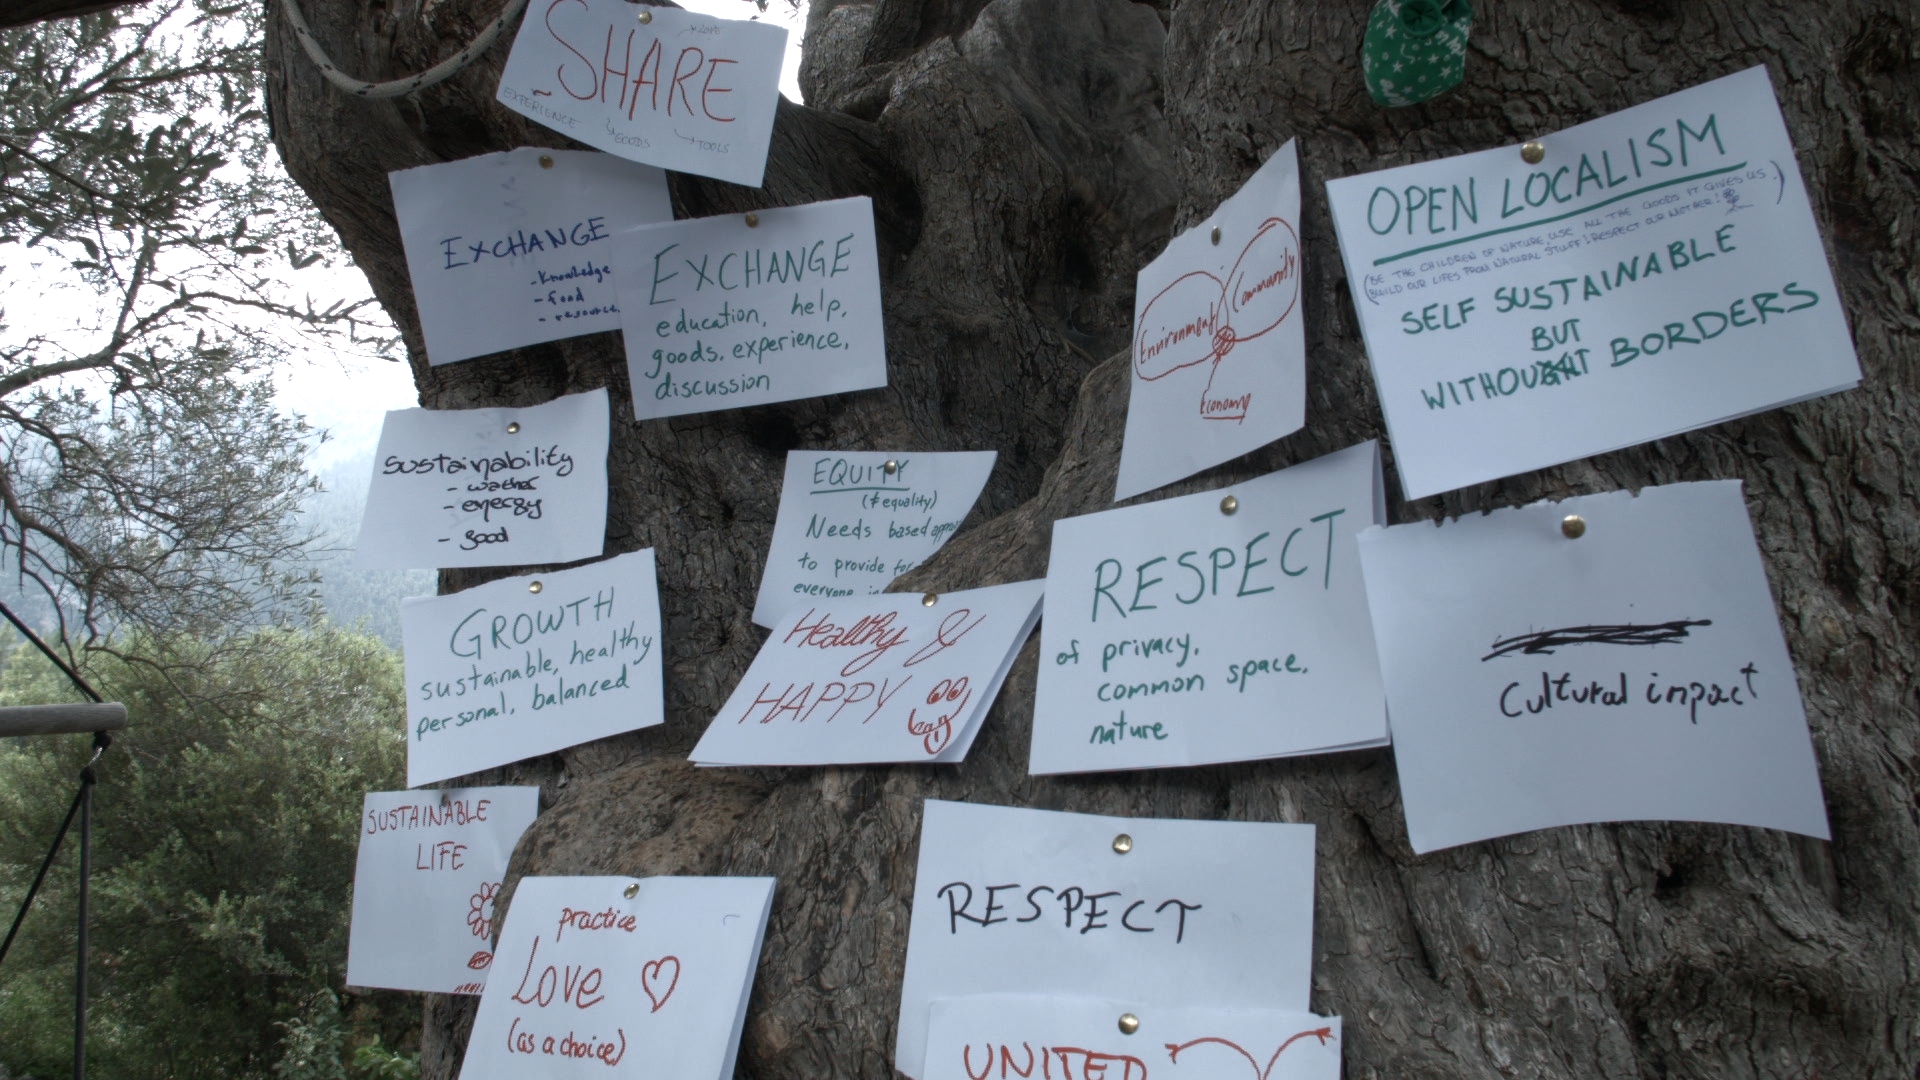 SHARE
LOVE
EXPERIENCE
GOODS
TOOLS
EXCHANGE
- Knowledge
- food
EXCHANGE
education, help,
goods, experience,
discussion
Environment
Community
Economy
OPEN LOCALISM
(BE THE CHILDREN OF NATURE, USE ALL THE GOODS IT GIVES US,
BUILD OUR LIFES FROM NATURAL STUFF! RESPECT OUR MOTHER!)
SELF SUSTAINABLE
BUT
WITHOUT BORDERS
sustainability
- wather
- energy
- good
EQUITY
(≠ equality)
Needs based
to provide for
everyone
RESPECT
of privacy,
common space,
nature
Cultural impact
GROWTH
sustainable, healthy
personal, balanced
Healthy &
HAPPY
SUSTAINABLE
LIFE
practice
Love
(as a choice)
RESPECT
UNITED